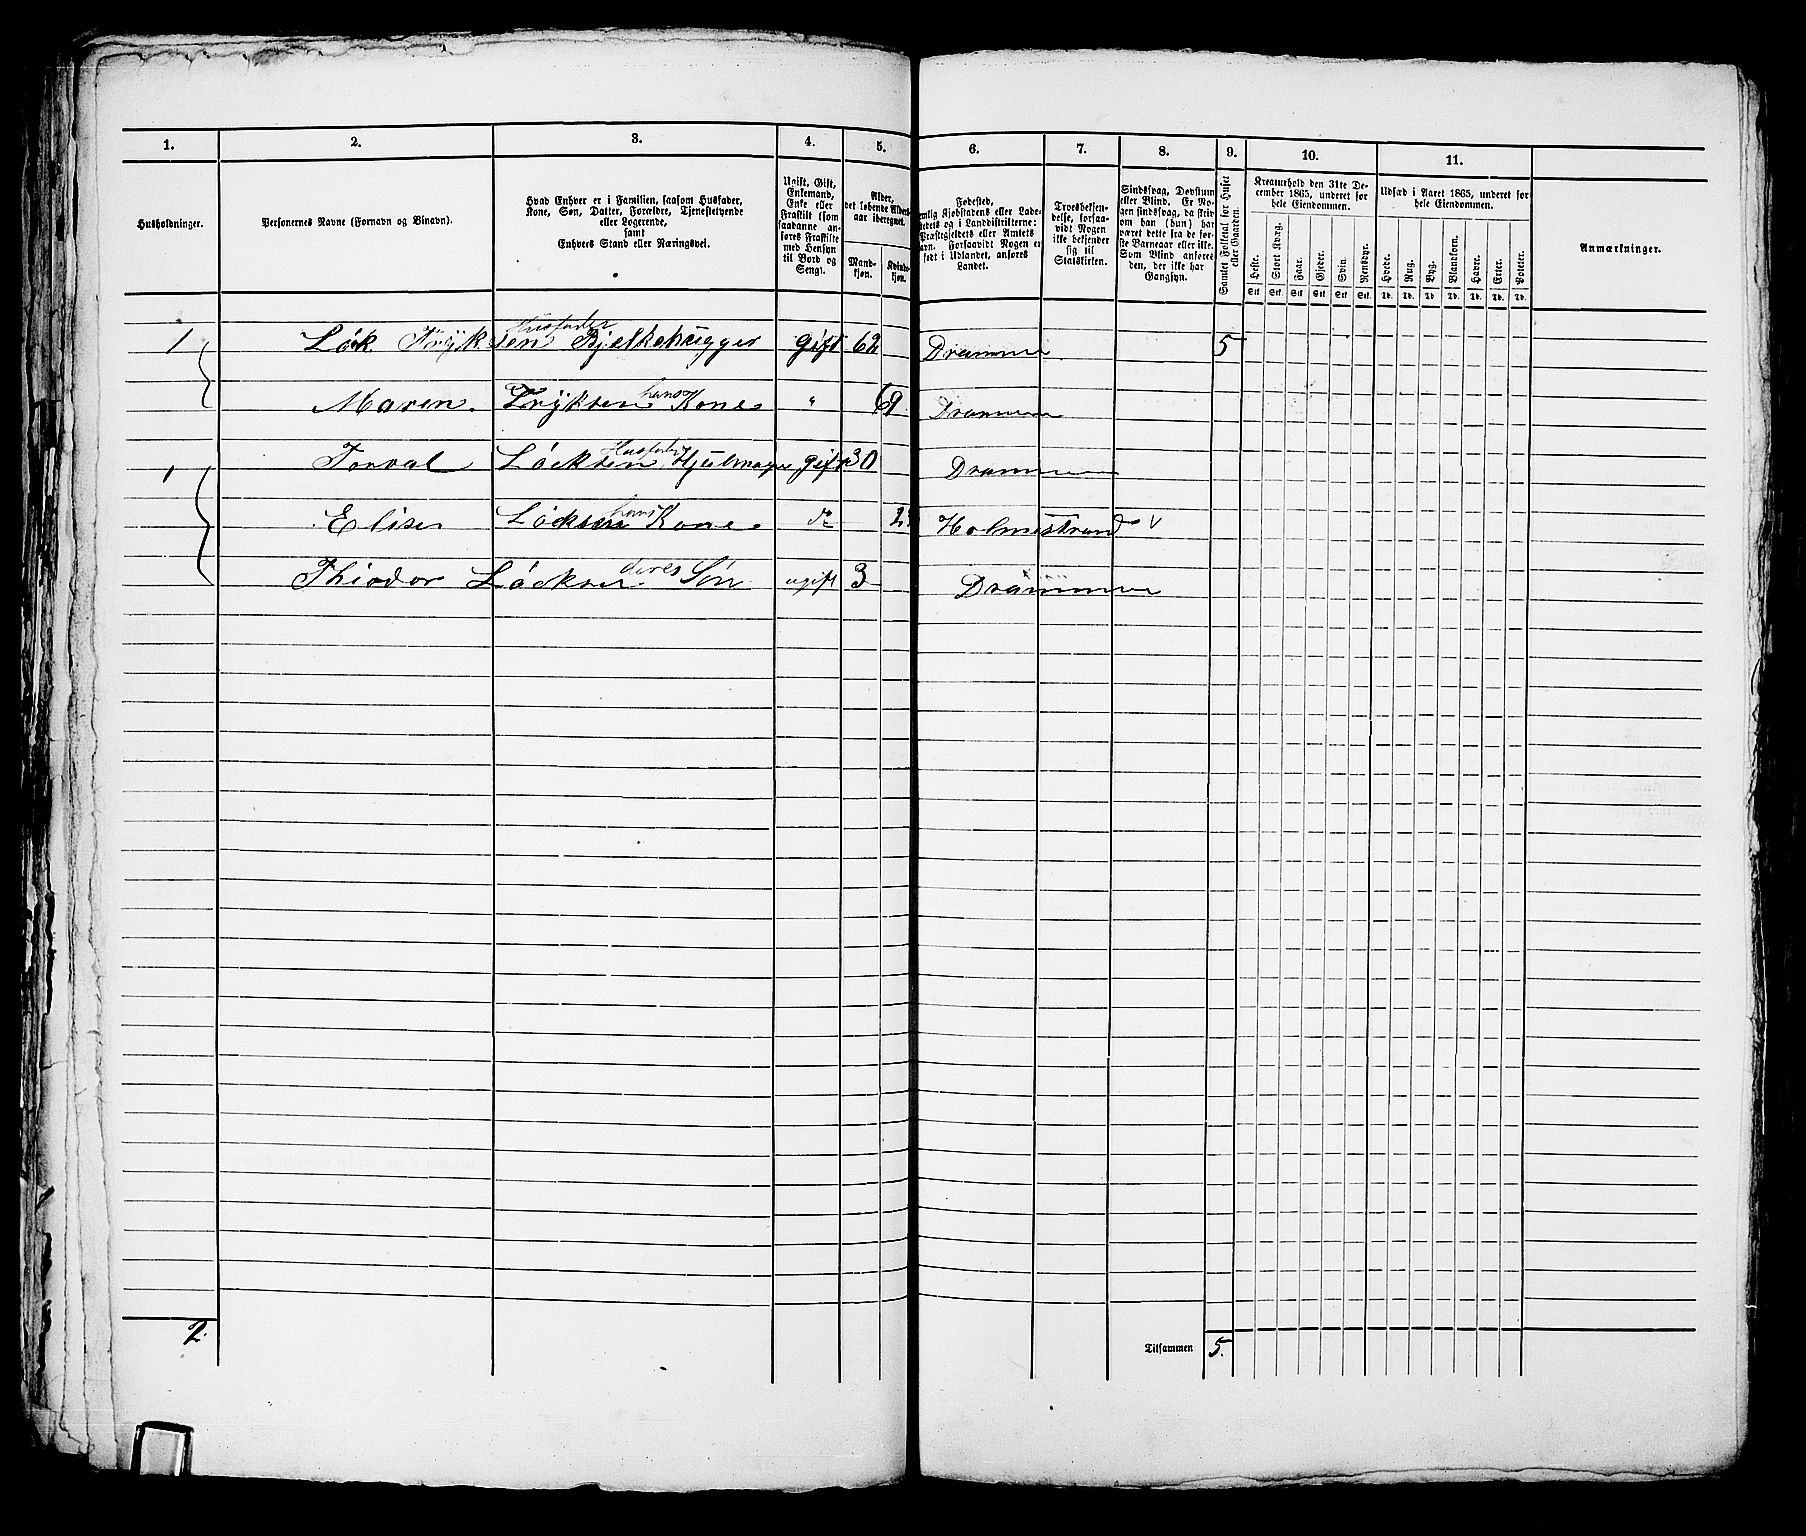 1. 2. 3. 4. 5. 6. 7. 8. 9. 10. 11.
Husholdninger.
Personernes Navne (Fornavn og Binavn).
Hvad Enhver er i Familien, saasom Husfader,
Kone, Søn, Datter, Forældre, Tjenestetyende
eller Logerende,
samt
Enhvers Stand eller Næringsvei.
Ugift, Gift,
Enkemand,
Enke eller
Fraskilt (som
saadanne an-
føres Fraskilte
med Hensyn
til Bord og
Seng).
Alder,
det løbende Alders-
aar iberegnet.
Mand-
kjøn.
Kvinde-
kjøn.
Fødested,
Kjøbstadens eller Lade-
stedets og i Landdistrikterne:
Præstegjeldets eller Amtets
Navn. Forsaavidt Nogen er
født i Udlandet, anføres
Landet.
Troesbekjen-
delse, forsaa-
vidt Nogen
ikke bekjender
sig til
Statskirken.
Sindssvag, Døvstum
eller Blind. Er No-
gen sindssvag, da skriv
om han (hun) har
været dette fra de før-
ste Barneaar eller ikke.
Som Blind anføres
den, der ikke har
Gangsyn.
Samlet Folketal for Huset
eller Gaarden.
Kreaturhold den 31te De-
cember 1865, underet for
hele Eiendommen.
Heste. Stort Kvæg. Faar. Gjeder. Svin. Rensdyr.
Stk. Stk. Stk. Stk. Stk. Stk.
Udsæd i Aaret 1865, underet for
hele Eiendommen.
Hvede. Rug. Byg. Blandkorn. Havre. Erter. Poteter.
Td. Td. Td. Td. Td. Td. Td.
Anmærkninger.
Husfader
1 Løk Fryksen Bjelkehugger gift 62 Drammen 5
Maren Fryksen hans Kone " 69 Drammen
1 Torval Løcksen Husfader Hjulmager gift 30 Drammen
Elise Løcksen hans Kone do Holmestrand v
Thiodor Løcksen deres Søn ugift 3 Drammen
2.
Tilsammen 5.